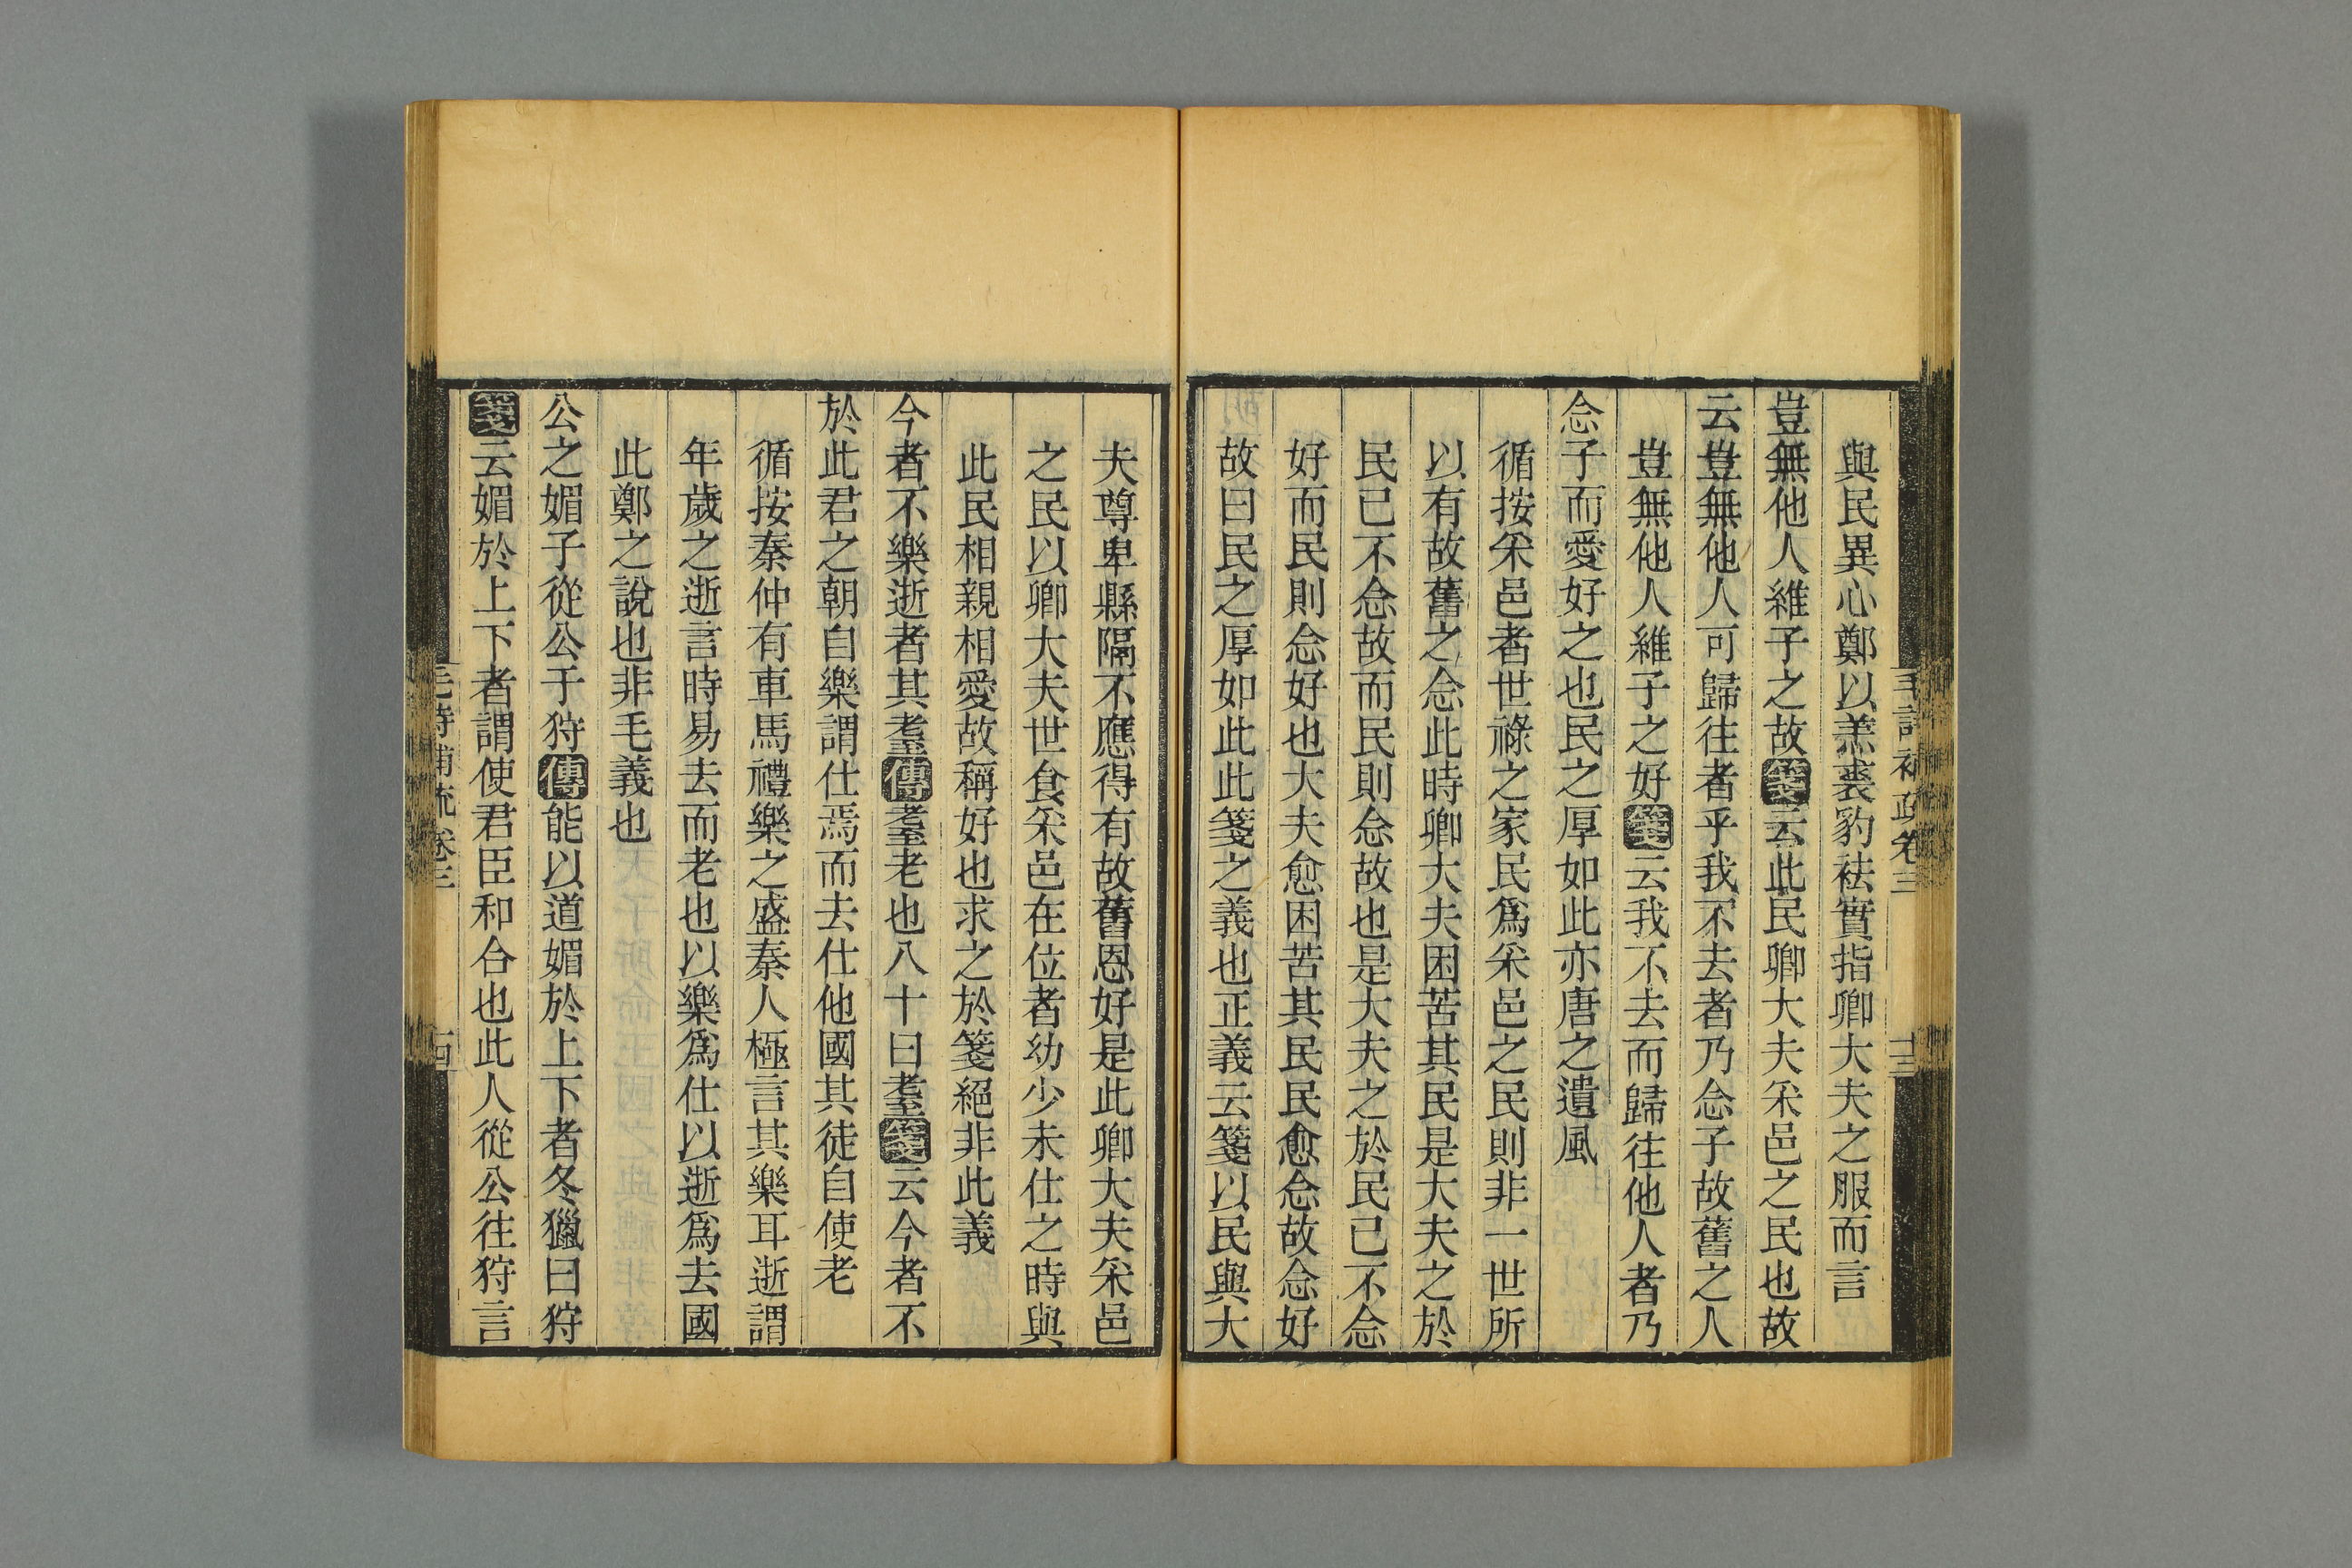 與民異心鄭以羔裘豹袪實指卿大夫之服而言
豈無他人維子之故箋云此民卿大夫采邑之民也故
云豈無他人可歸往者乎我不去者乃念子故舊之人
豈無他人維子之好箋云我不去而歸往他人者乃
念子而愛好之也民之厚如此亦唐之遺風
循按采邑者世祿之家民爲采邑之民則非一世所
以有故舊之念此時卿大夫困苦其民是大夫之於
民已不念故而民則念故也是大夫之於民已不念
好而民則念好也大夫愈困苦其民民愈念故念好
故曰民之厚如此此箋之義也正義云箋以民與大
夫尊卑縣隔不應得有故舊恩好是此卿大夫采邑
之民以卿大夫世食采邑在位者幼少未仕之時與
此民相親相愛故稱好也求之於箋絕非此義
今者不樂逝者其耋傳耋老也八十曰耋箋云今者不
於此君之朝自樂謂仕焉而去仕他國其徒自使老
循按秦仲有車馬禮樂之盛秦人極言其樂耳逝謂
年歲之逝言時易去而老也以樂爲仕以逝爲去國
此鄭之說也非毛義也
公之媚子從公于狩傳能以道媚於上下者冬獵曰狩
箋云媚於上下者謂使君臣和合也此人從公往狩言
毛詩補疏卷三
十三
毛詩補疏卷三
十四